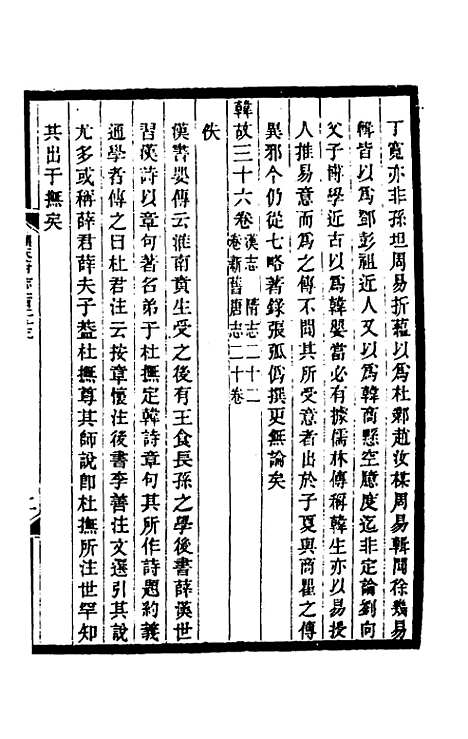 丁寬亦非孫坦周易折蘊以爲杜鄴趙汝楳周易輯聞徐幾易
輯皆以爲鄧彭祖近人又以爲韓商懸空臆度迄非定論劉向
父子博學近古以爲韓嬰當必有據儒林傳稱韓生亦以易授
人推易意而爲之傳不問其所受意者出於子夏與商瞿之傳
異邪今仍從七略著錄張弧僞撰更無論矣
韓故三十六卷漢志 隋志二十二卷新舊唐志二十卷
佚
漢書嬰傳云淮南賁生受之後有王食長孫之學後書薛漢世
習漢詩以章句著名弟子杜撫定韓詩章句其所作詩題約義
通學者傳之曰杜君注云按章懷注後書李善注文選引其說
尤多或稱薛君薛夫子葢杜撫尊其師說卽杜撫所注世罕知
其出于撫矣